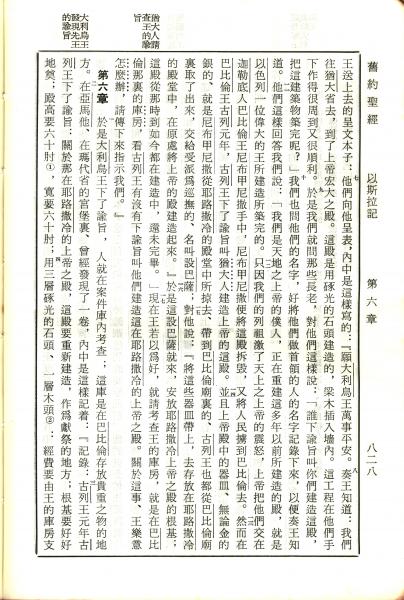 舊約聖經　以斯拉記　第六章　八二八
王送上去的呈文本子：他們向他呈表，內中是這樣寫的：『願大利烏王萬事平安。奏王知道：我們
往猶大省去，到了上帝宏大之殿。這殿是用硺光的石頭建造的，梁木插入墻內。這工程在他們手
下作得很周到又很順利。於是我們就問那些長老，對他們這樣說：「誰下諭旨叫你們建造這殿，
把這建築物築完呢？」我們也問他們的名字，好將他們做首領的人的名字記錄下來，以便奏王知
道。他們這樣回答我們說：「我們是天地之上帝的僕人，正在重建這多年以前所建造的殿，就是
以色列一位偉大的王所建造所築完的。只因我們的列祖激了天上之上帝的震怒，上帝把他們交在
迦勒底人巴比倫王尼布甲尼撒手中，尼布甲尼撒便將這殿拆毀，又將人民擄到巴比倫去。然而在
巴比倫王古列元年，古列王下了諭旨叫猶大人建造上帝的這殿。並且上帝殿中的器皿、無論金的
銀的、就是尼布甲尼撒從耶路撒冷的殿堂中所掠去、帶到巴比倫廟裏的，古列王也都從巴比倫廟
裏取了出來，交給受派爲巡撫的、名叫設巴薩；對他說：『將這些器皿帶上，去存放在耶路撒冷
的殿堂中，在原處將上帝的殿建造起來。』於是這設巴薩就來，安放耶路撒冷上帝之殿的根基；
這殿從那時到如今都在建造中，還未完畢。」現在王若以爲好，就請考查王的庫房，就是在巴比
倫那裏的庫房，看古列王有沒有下諭旨叫他們建造這在耶路撒冷的上帝之殿。關於這事、王樂意
怎麼辦，請傳下來指示我們。』
第六章　於是大利烏王下了諭旨，人就在案件庫內考查；這庫是在巴比倫存放貴重之物的地
方。在亞馬他、在瑪代省的宮堡裏、曾經發現了一卷，內中是這樣記着：『記錄：古列王元年古
列王下了諭旨，關於那在耶路撒冷的上帝之殿，這殿要重新建造，作爲獻祭的地方；根基要好好
地奠；殿高要六十肘①，寬要六十肘；用三層硺光的石頭、一層木頭②：經費要由王的庫房支
猶大人請
查王的諭
大利烏王
發現先王
的諭旨